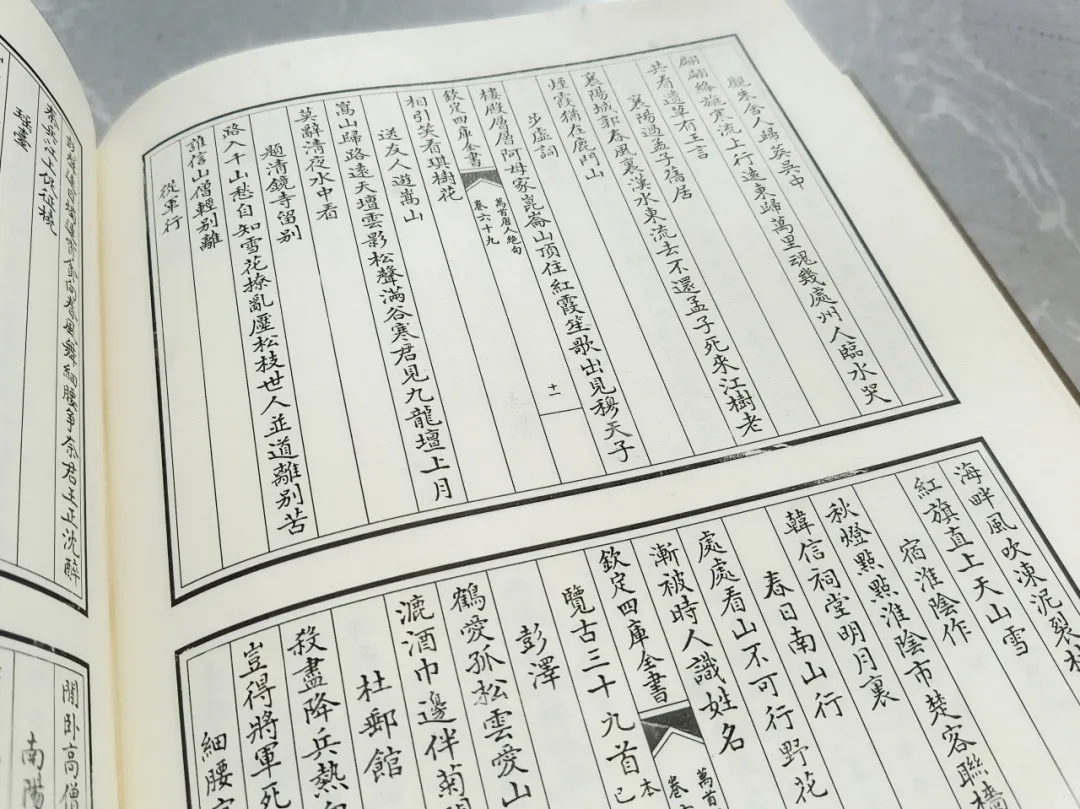 脫朱舍人歸葬吳中
翩翩絳旐寒流上行遠東歸萬里魂幾處州人臨水哭
共看遺草有王言
襄陽過孟子舊居
襄陽城郭春風裏漢水東流去不還孟子死來江樹老
煙霞猶在鹿門山
步虛詞
樓殿層層阿母家崑崙山頂住紅霞笙歌出見穆天子
欽定四庫全書
萬首唐人絶句
卷六十九
十一
相引笑看琪樹花
送友人遊嵩山
嵩山歸路遠天壇雲影松聲滿谷寒君見九龍壇上月
莫辭清夜水中看
題清鏡寺留別
路入千山愁自知雪花撩亂壓松枝世人並道離別苦
誰信山僧輕別離
從軍行
海畔風吹凍泥裂
紅旗直上天山雪
宿淮陰作
秋燈點點淮陰市楚客聯檣
韓信祠堂明月裏
春日南山行
處處看山不可行野花
漸被時人識姓名
欽定四庫全書
萬首
覽古三十九首
彭澤
鶴愛孤松雲愛山
漉酒巾邊伴菊
杜郵館
殺盡降兵熱
豈得將軍死
細腰
細腰爭奈君王正沈醉
瑤臺
閒卧高僧
南陽